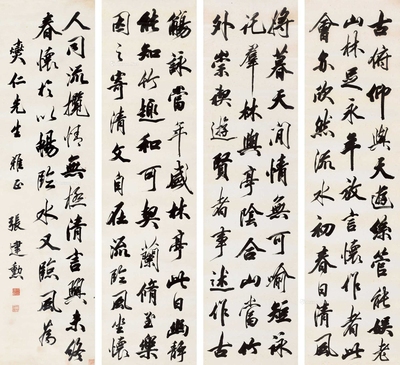 古俯仰與天遊絲管能娛老
山林足永年放言懷作者此
會尓欣然流水初春日清風
將暮天閒情無可喻短詠
託羣林與亭陰合山當竹
外崇稧遊賢者事述作古
觴詠當年盛林亭此日幽靜
能知竹趣和可契蘭脩至樂
因之寄清文自在流臨風坐懷
人同流攬情無極清言興未終
春懷於以暢臨水又臨風為
奭仁先生雅正 張建勳